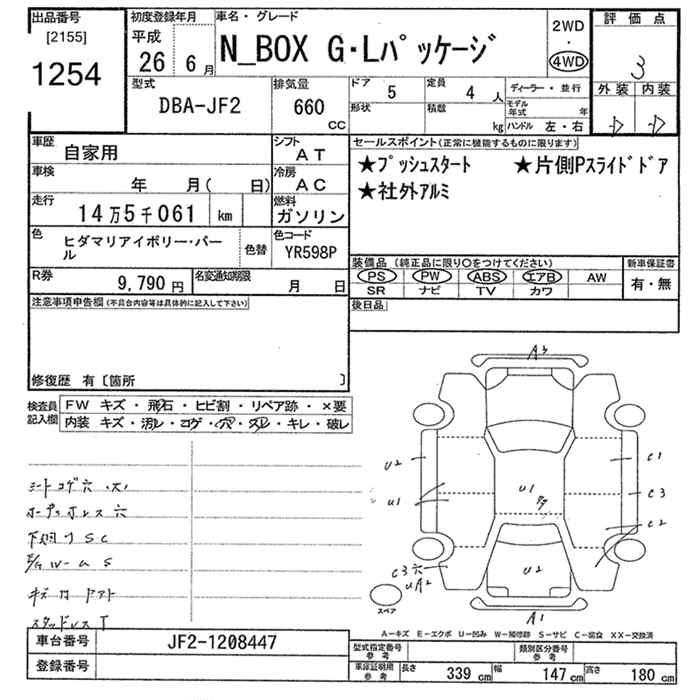 出品番号
[2155]
1254
初度登録年月
平成
26 6月
車名・グレード
N_BOX G・Lパッケージ
2WD
・
4WD
評価点
3
外装 内装
D D
型式
DBA-JF2
排気量
660
CC
ドア
5
定員
4 人
形状
積載
kg
ディーラー・並行
モデル年式 年
ハンドル 左・右
車歴
自家用
シフト
AT
車検
年 月( 日)
冷房
AC
走行
14万5千061 km
燃料
ガソリン
色
ヒダマリアイボリー・パール
色替
色コード
YR598P
R券
9,790円
名変通知期限
月 日
セールスポイント(正常に機能するものに限ります)
★プッシュスタート ★片側Pスライドドア
★社外アルミ
装備品 (純正品に限り○をつけてください)
PS PW ABS エアB AW
SR ナビ TV カワ
新車保証書
有・無
後日品
注意事項申告欄(不具合内容等は具体的に記入して下さい)
修復歴 有〔箇所 〕
検査員記入欄
FW キズ・飛石・ヒビ割・リペア跡・×要
内装 キズ・汚レ・コゲ・穴・スレ・キレ・破レ
シートコゲ穴
下廻り SC
スタッドレスT
A3
U2
U1
U1
C1
C3
C2
C3穴
UA2
U2
A1
スペア
A-キズ E-エクボ U-凹み W-補修跡 S-サビ C-腐食 XX-交換済
車台番号
JF2-1208447
登録番号
型式指定番号
参考
類別区分番号
参考
車庫証明用
参考
長さ 339 cm
幅 147 cm
高さ 180 cm